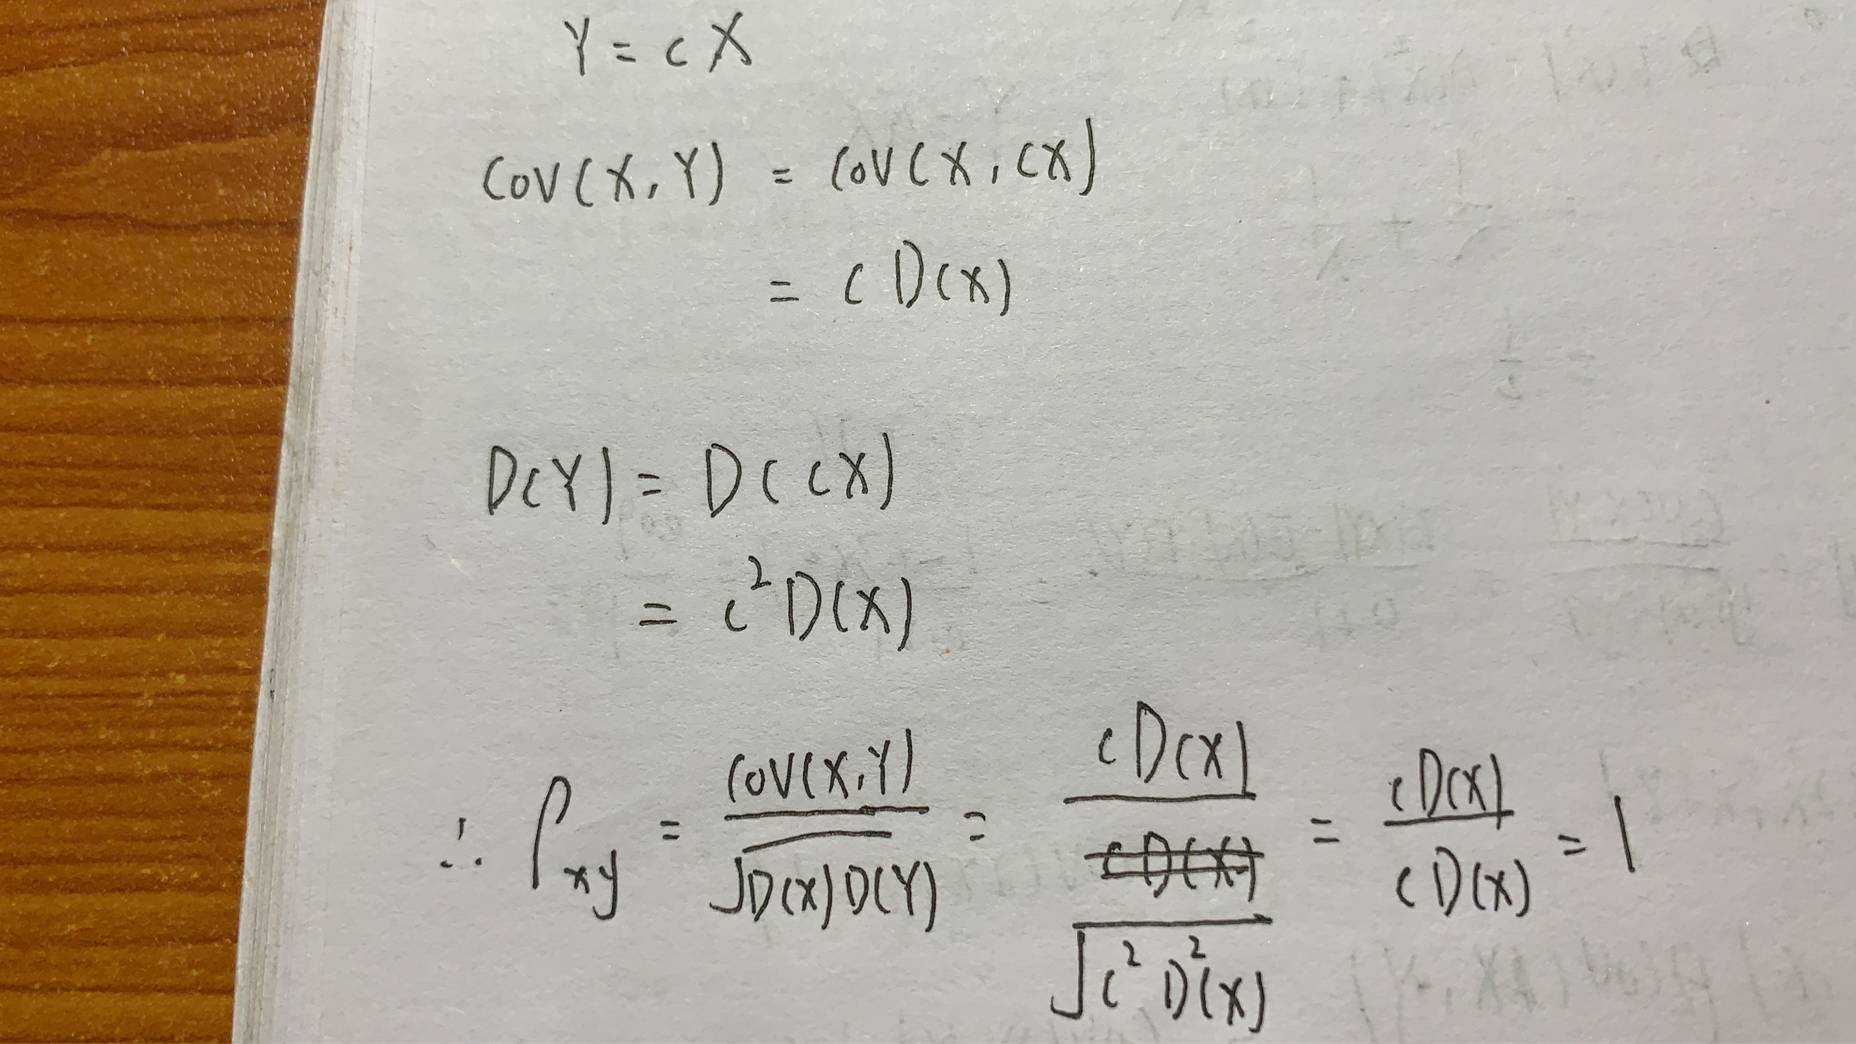 Y = cX
COV(X,Y) = COV(X,CX)
= C D(X)
D(Y) = D(CX)
= c²D(X)
∴ ρxy = COV(X,Y) / √D(X)D(Y) = cD(X) / √c²D²(X) = cD(X) / cD(X) = 1